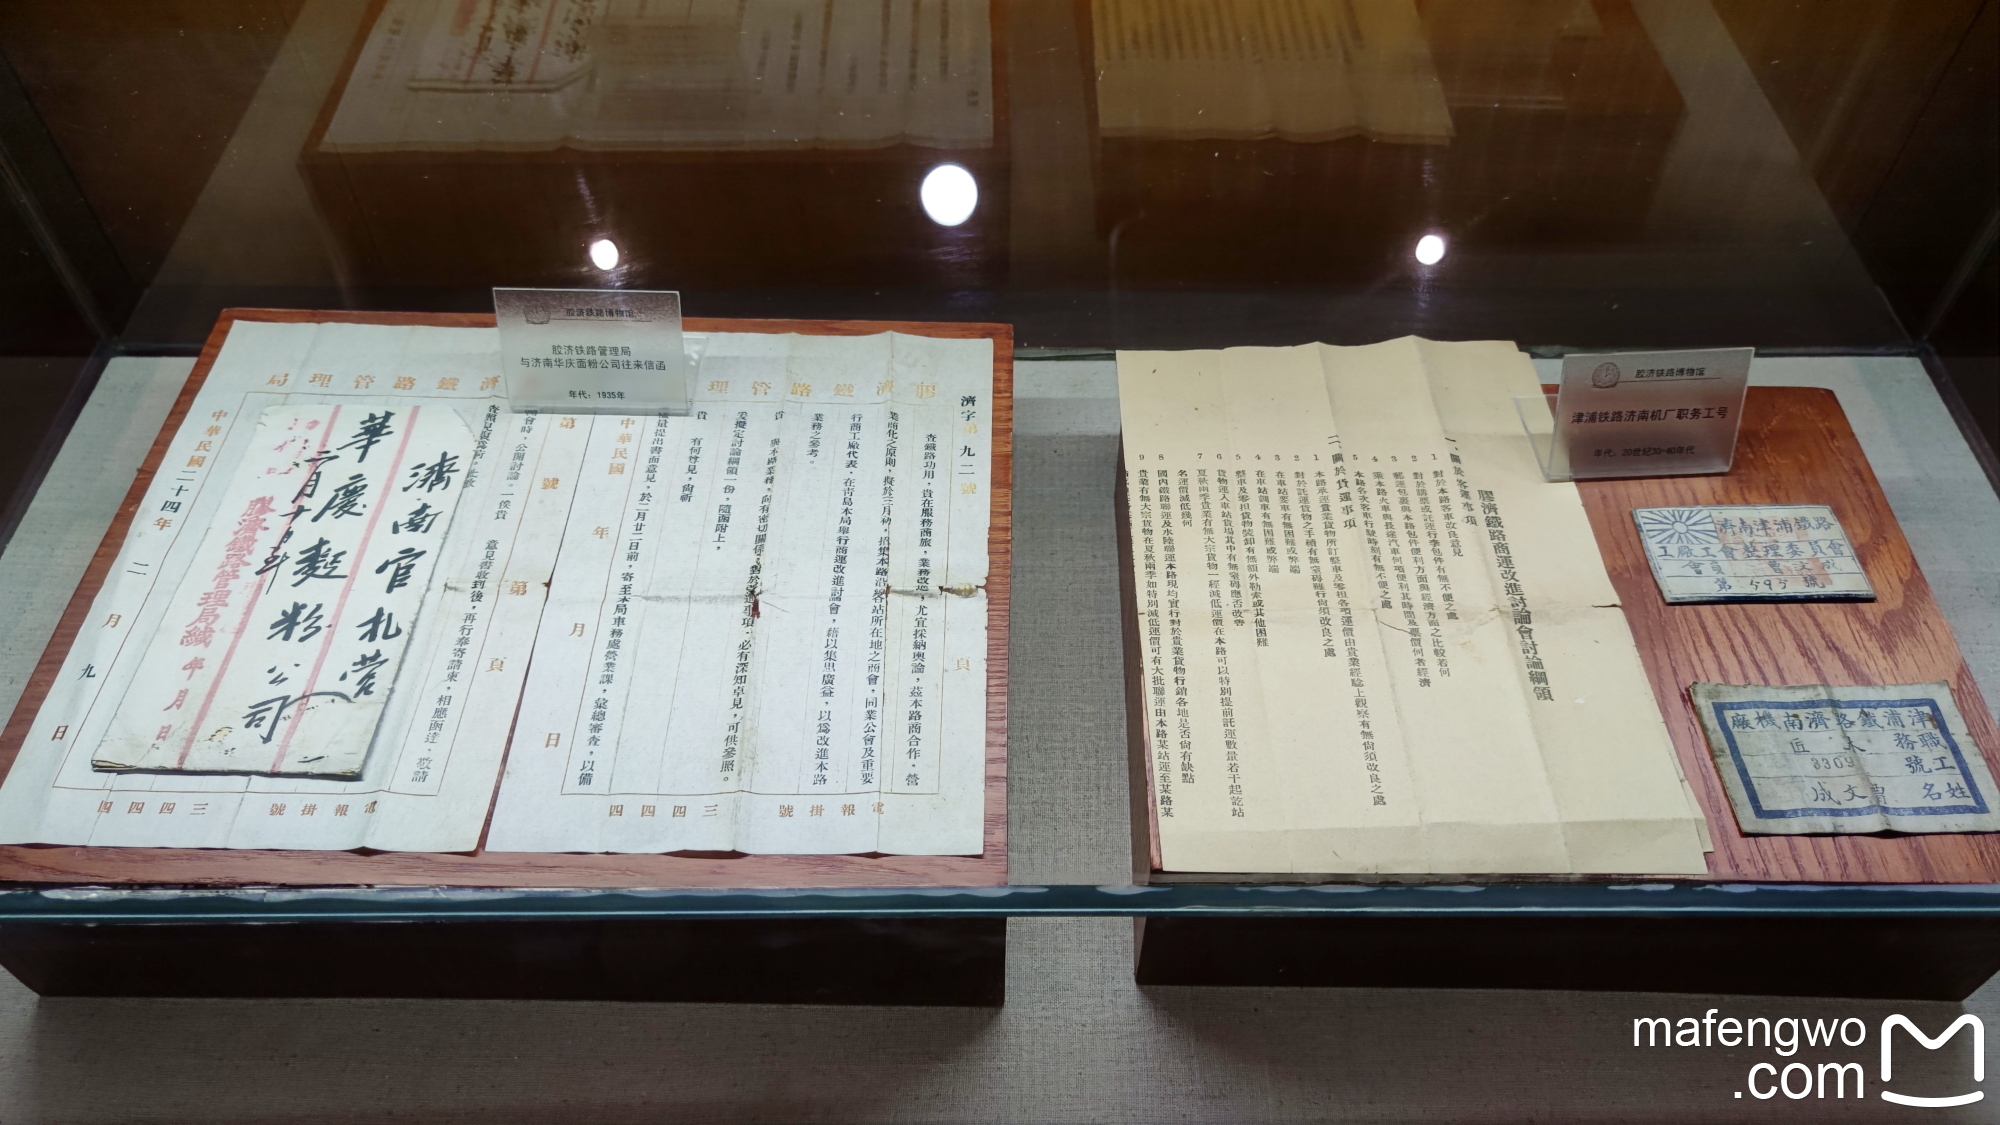 胶济铁路博物馆
胶济铁路管理局
与济南华庆面粉公司往来信函
年代：1935年
濟字第九二號
查鐵路功用，貴在服務商旅，業務改進，尤宜採納輿論，茲本路商合作，營
業商化之原則，擬於三月初，招集本路沿綫各站所在地之商會，同業公會及重要
行商工廠代表，在青島本局舉行商運改進討論會，藉以集思廣益，以爲改進本路
業務之參考。
貴
與本路業務，向有密切關係，對於
必有深知卓見，可供參照。
爰擬定討論綱領一份，隨函附上，
貴
有何尊見，尙祈
儘量提出書面意見，於二月廿二日前，寄至本局車務處營業課，彙總審查，以備
開會時，公開討論。一俟貴
意見書收到後，再行奉寄請柬，相應函達，敬請
查照見復爲荷。此致
中華民國
年
月
日
第
號
第
頁
中華民國二十四年二月九日
電報掛號
三四四四
電報掛號
三四四四
濟南官札營
華慶麵粉公司
膠濟鐵路管理局緘
年月日
膠濟鐵路商運改進討論會討論綱領
一、關於客運事項
1 對於本路客車改良意見
2 對於購票或託運行李包件有無不便之處
3 郵運包裹與本路包件便利方面與經濟方面之比較若何
4 乘本路火車與長途汽車何項便利其時間及票價何者經濟
5 本路各次客車行駛時刻有無不便之處
二、關於貨運事項
1 本路承運貴業貨物所訂整車及零担各項運價由貴業經驗上觀察有無尙須改良之處
2 對於託運貨物之手續有無窒碍難行尙須改良之處
3 在車站要車有無困難或弊端
4 在車站卸車有無困難或弊端
5 整車及零担貨物裝卸有無額外勒索或其他困難
6 貨物運入車站貨塲其中有無窒碍應否改善
7 夏秋兩季貴業有無大宗貨物一經減低運價在本路可以特別提前託運數量若干起訖站
名運價減低幾何
8 國內鐵路聯運及水陸聯運本路現均實行對於貴業貨物行銷各地是否尙有缺點
9 貴業有無大宗貨物在夏秋兩季如特別減低運價可有大批聯運由本路某站運至某路某
胶济铁路博物馆
津浦铁路济南机厂职务工号
年代：20世纪30-40年代
濟南津浦鐵路
工廠工會整理委員會
第595號
津浦鐵路濟南機廠
職務
木匠
工號
3309
姓名
文成
mafengwo
.com